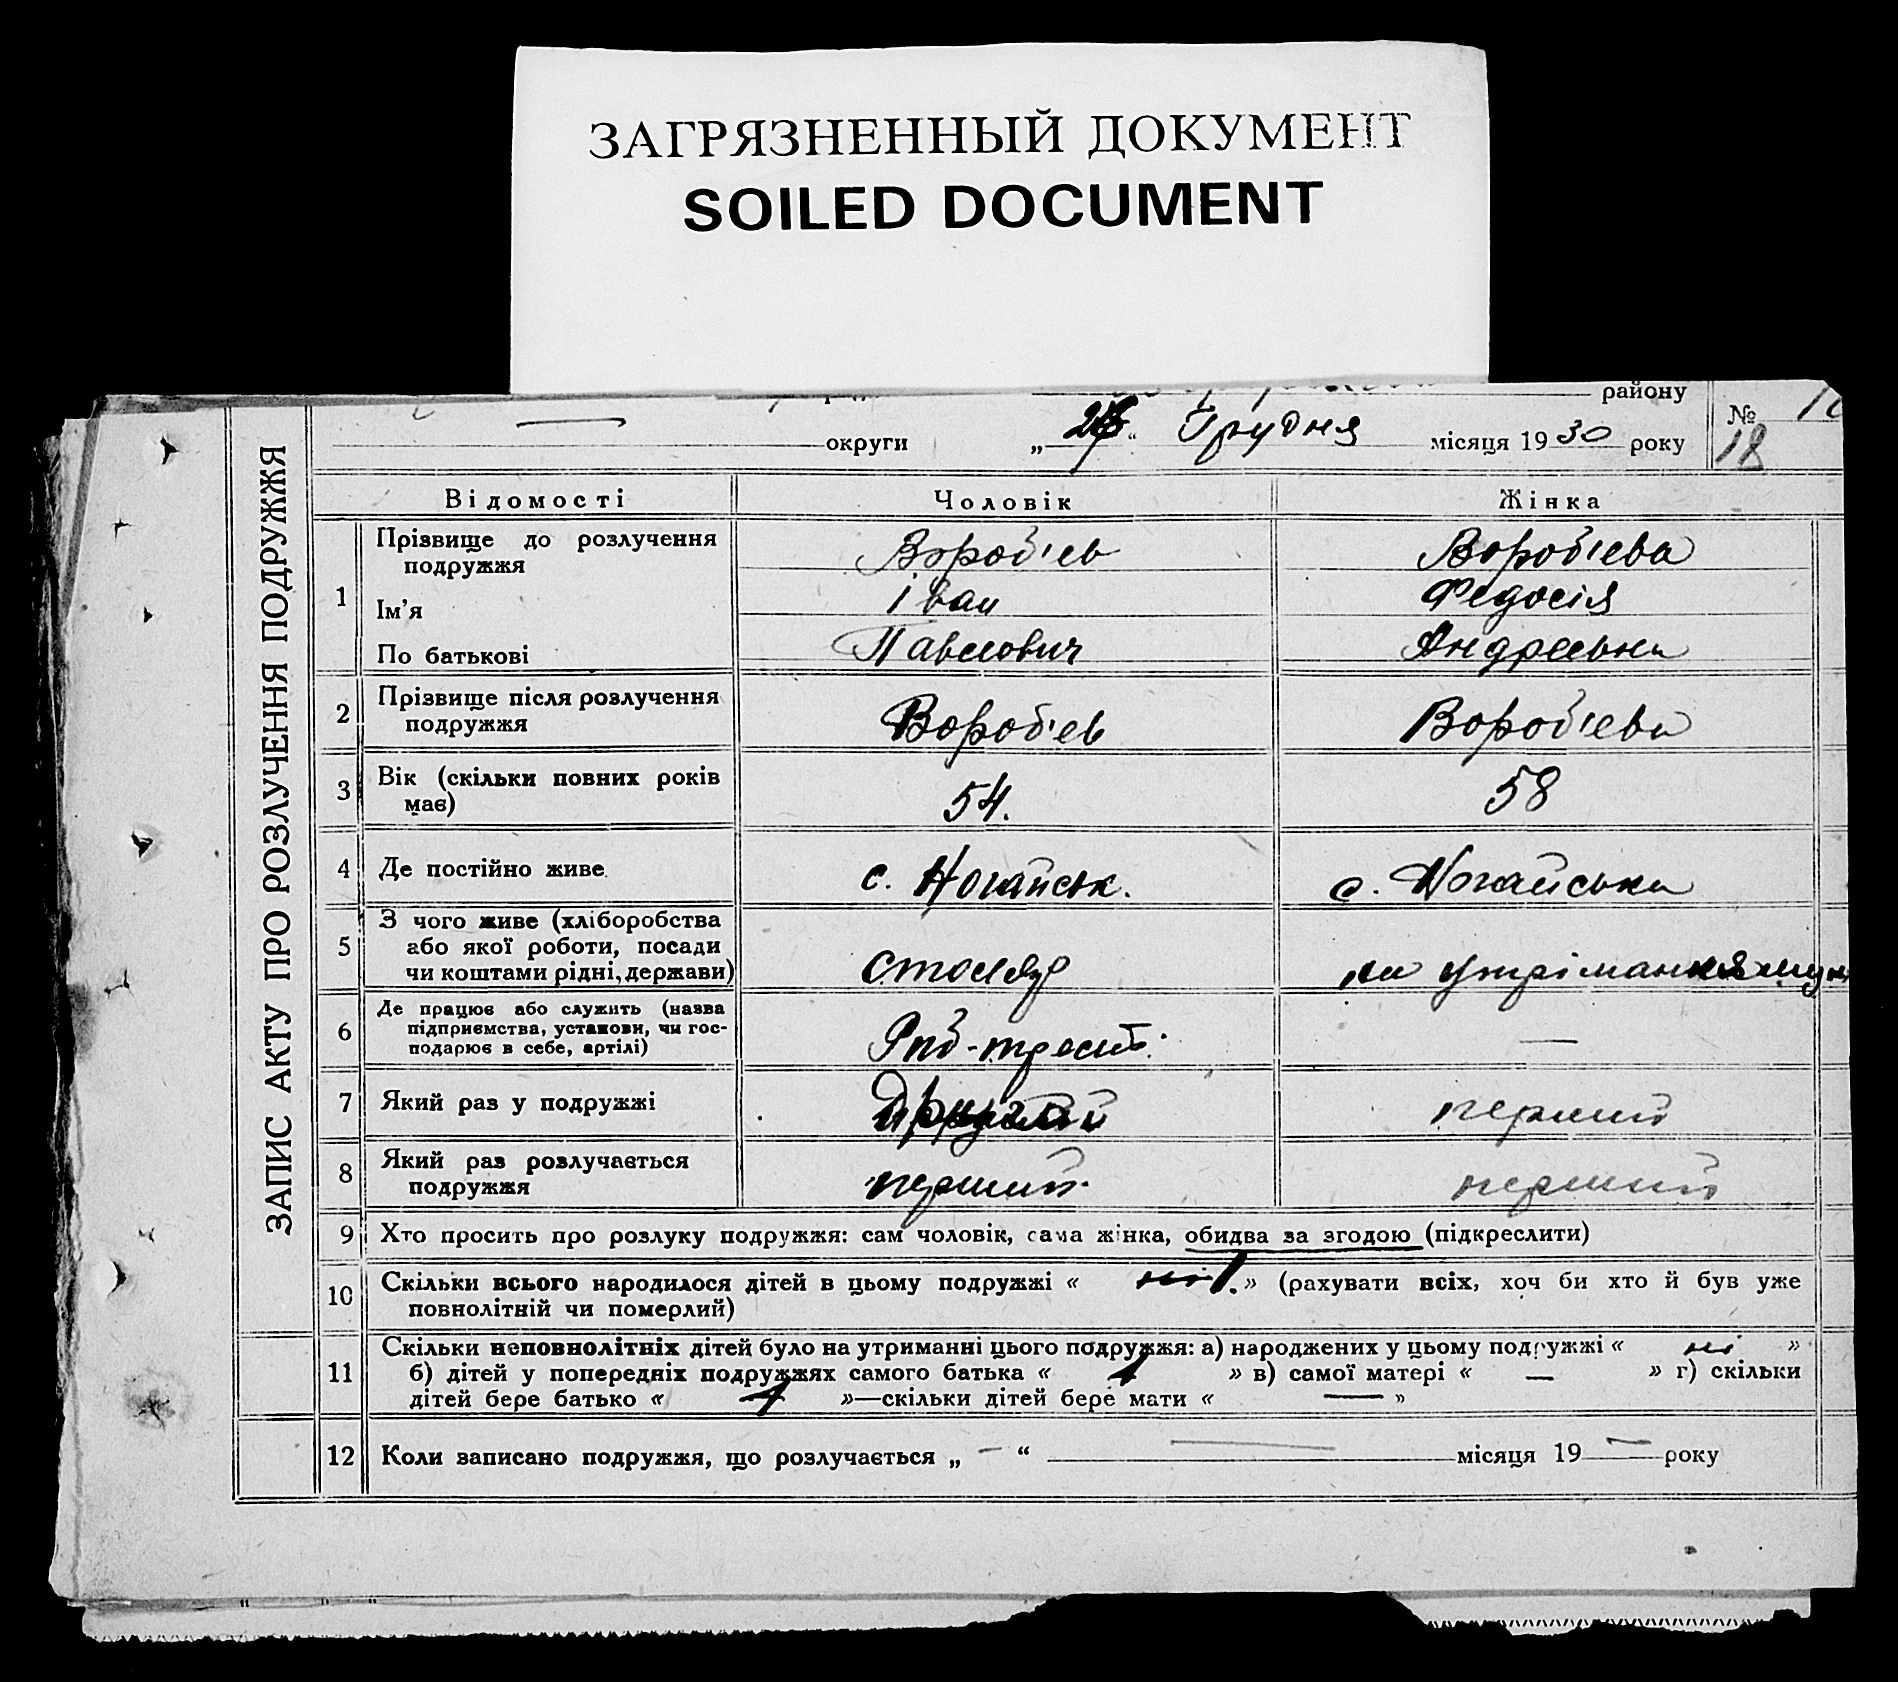 ЗАГРЯЗНЕННЫЙ ДОКУМЕНТ
SOILED DOCUMENT
району
№
округи „ “ Грудня місяця 1930 року
18
ЗАПИС АКТУ ПРО РОЗЛУЧЕННЯ ПОДРУЖЖЯ
Відомості Чоловік Жінка
1 Прізвище до розлучення подружжя Вороб'єв Вороб'єва
Ім'я Іван Федосія
По батькові Павлович Андреєвна
2 Прізвище після розлучення подружжя Вороб'єв Вороб'єва
3 Вік (скільки повних років має) 54. 58
4 Де постійно живе с. Ногайськ. с. Ногайська
5 З чого живе (хліборобства або якої роботи, посади чи коштами рідні, держави) столяр на утрімання
6 Де працює або служить (назва підприємства, установи, чи господарює в себе, артілі) —
7 Який раз у подружжі Другий перший
8 Який раз розлучається подружжя перший. перший
9 Хто просить про розлуку подружжя: сам чоловік, сама жінка, обидва за згодою (підкреслити)
10 Скільки всього народилося дітей в цьому подружжі « ні. » (рахувати всіх, хоч би хто й був уже
повнолітній чи померлий)
11 Скільки неповнолітніх дітей було на утриманні цього подружжя: а) народжених у цьому подружжі « ні »
б) дітей у попередніх подружжях самого батька « 1 » в) самої матері « — » г) скільки
дітей бере батько « 1 »—скільки дітей бере мати « — »
12 Коли записано подружжя, що розлучається „ — “ — місяця 19 — року